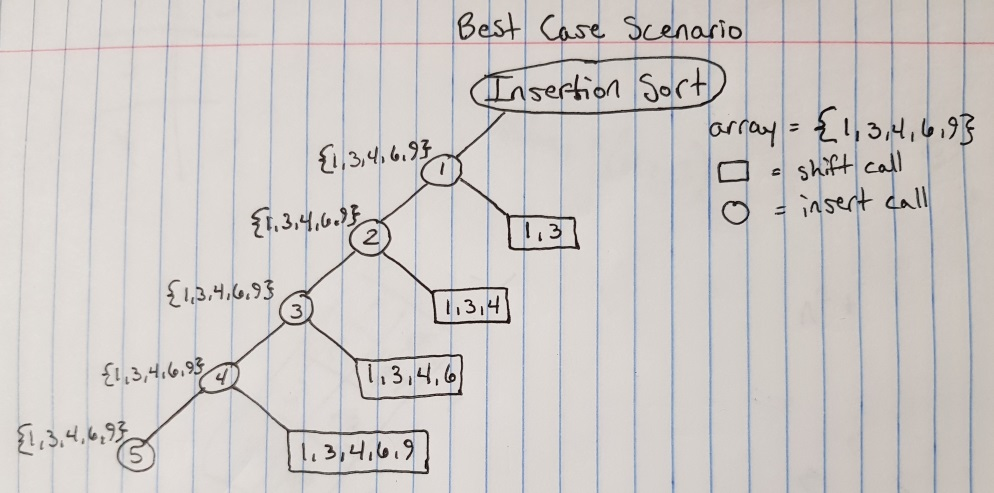 Best Case Scenario
Insertion Sort
array = {1,3,4,6,9}
= shift call
= insert call
{1,3,4,6,9}
1
1,3
{1,3,4,6,9}
2
1,3,4
{1,3,4,6,9}
3
1,3,4,6
{1,3,4,6,9}
4
1,3,4,6,9
{1,3,4,6,9}
5